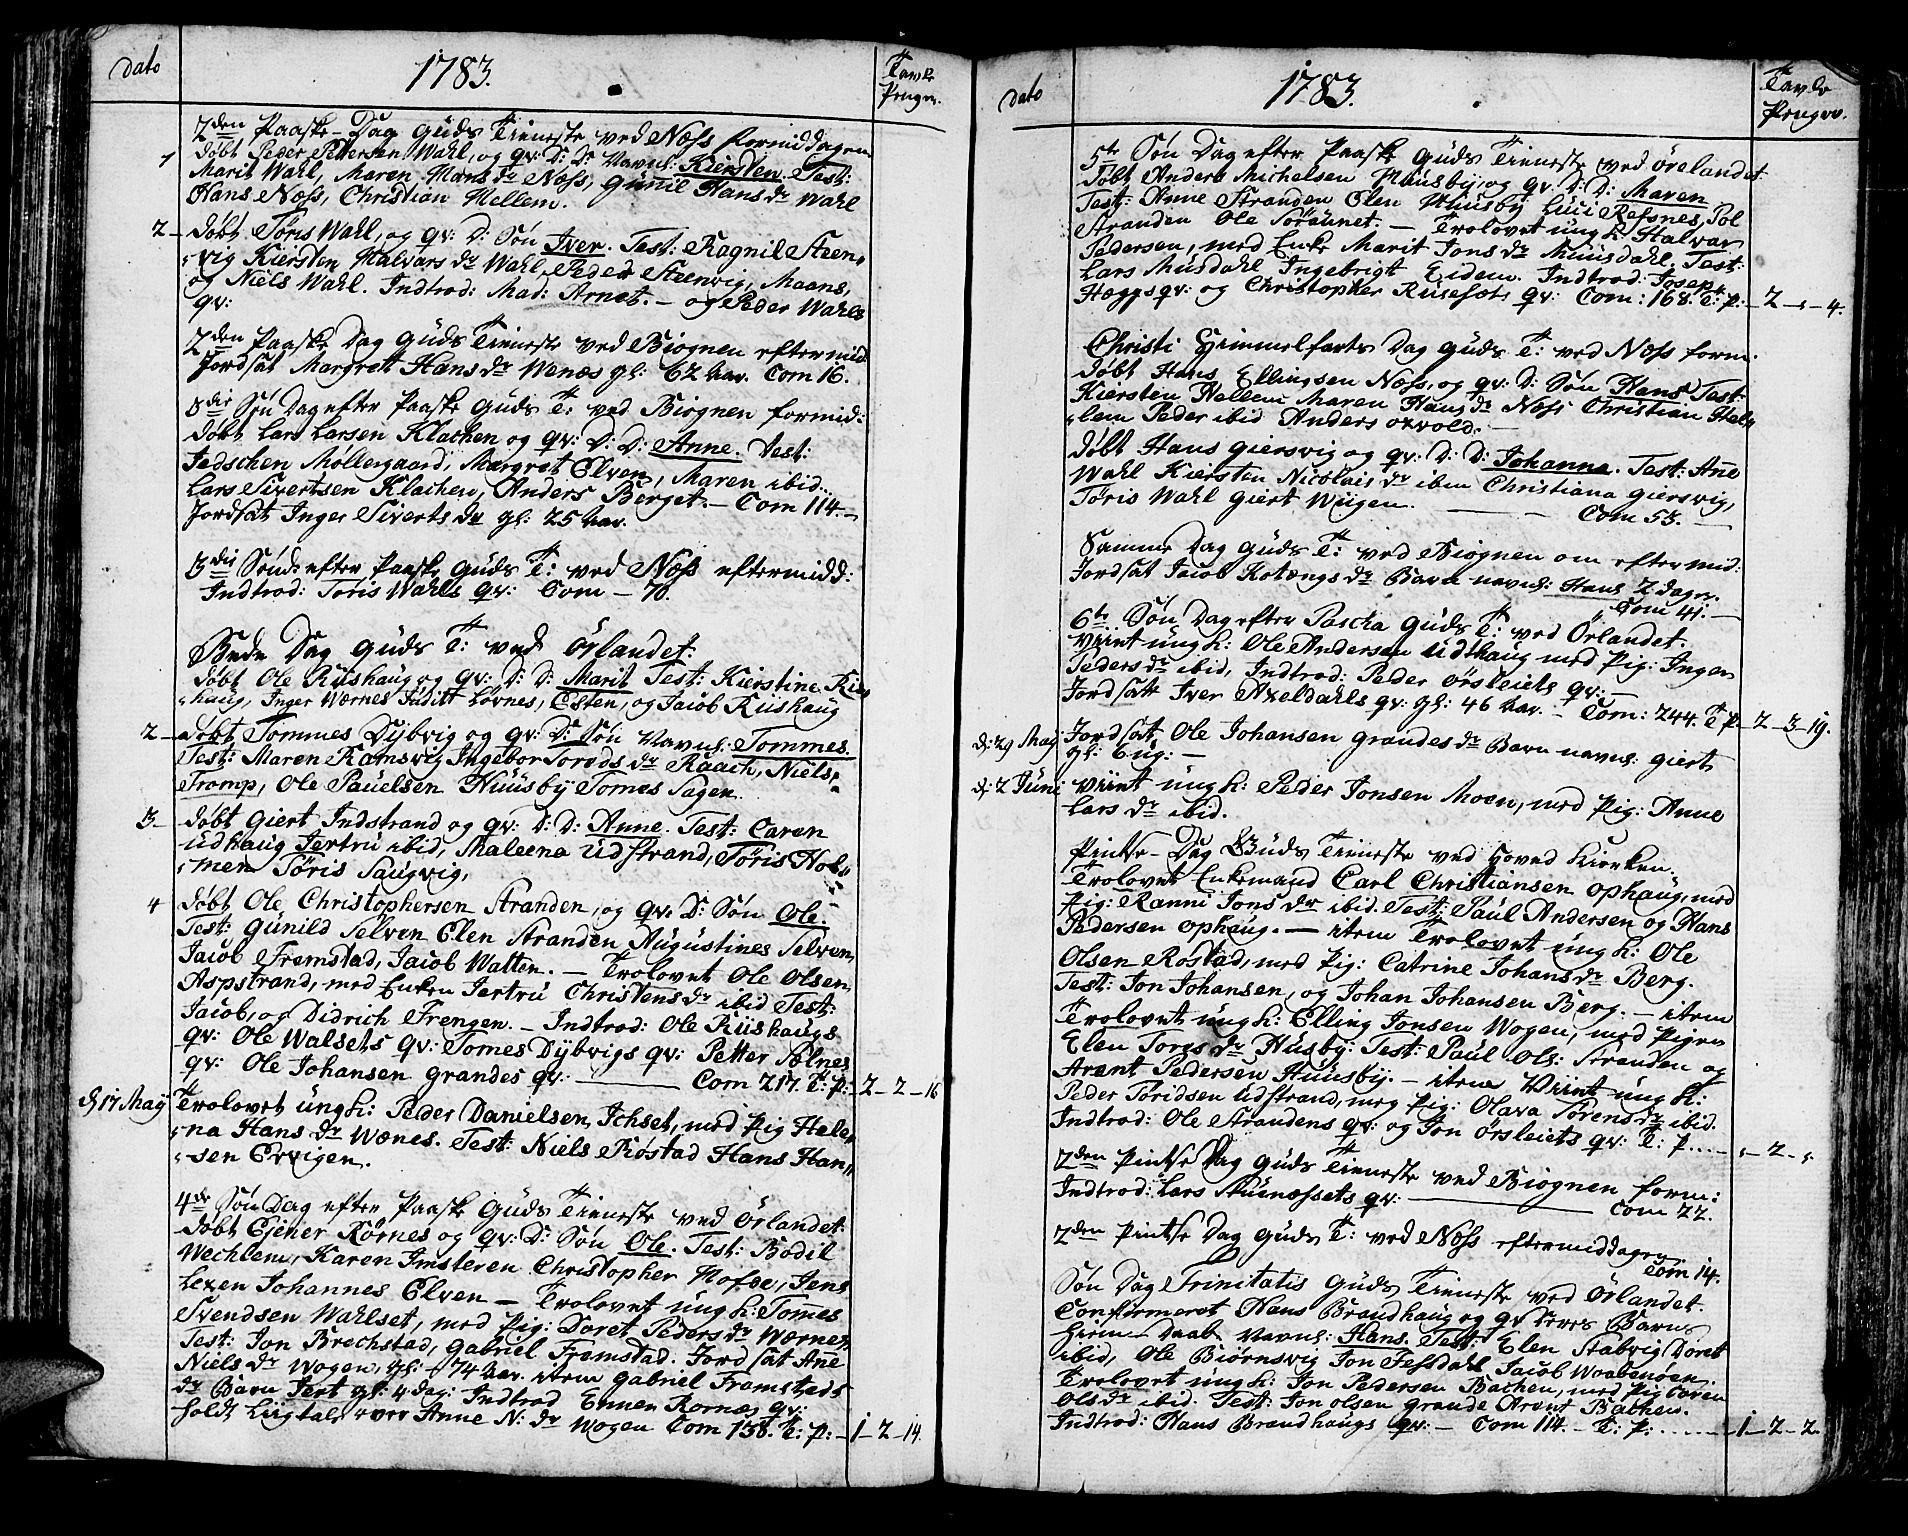 Dato
1783.
Tavle
Penger.
2den Paaske-Dag Guds Tieneste ved Næss formiddagen
1 døbt Peder Pettersen Wahl, og qv: D: Dr Navnl: Kiersten. Test:
Marit Wahl, Maren Hans dr Næss, Gunil Hans dr Wahl
Hans Næss, Christian Mellem.
2 - døbt Tøris Wahl, og qv: D: Søn Iver. Test: Ragnil Steen-
vig Kiersten Halvars dr Wahl, Peder Steenvig, Maans,
og Niels Wahl. Indtrod: Mad: Arnet. - og Peder Wahls
qv:
2den Paaske Dag Guds Tieneste ved Biognen eftermid
Jordsat Margret Hans dr Wenæs gl: 62 aar. Com 16.
Søn Dag efter Paaske Guds T: ved Biognen formid:
døbt Lars Larsen Klachen og qv: D: D: Anne. Test:
Jedschen Møllergaard, Margret Elven, Maren ibid.
Lars Sivertsen Klachen, Anders Berget. - Com 114. -
Jordsat Inger Siverts dr gl: 25 aar.
3die Sønd: efter Paaske Guds T: ved Næss eftermidd:
Indtrod: Tøris Wahls qv: Com - 70.
Bede Dag Guds T: ved Ørlandet:
døbt Ole Rishaug og qv: D: D: Marit Test: Kierstine Ris-
haug, Inger Wærnes Juditt Løvnes, Esten, og Jacob Rishaug
2 - døbt Tommes Dybvig og qv: D: Søn Navnl: Tommes.
Test: Maren Ramsvig Ingebor Torods dr Raach, Niels
Tromp, Ole Pauelsen Huusby Tomes Sagen.
3 - døbt Giert Indstrand og qv: D: D: Anne. Test: Caren
Udhaug Jertru ibid, Maleena Udstrand, Tøris Hol-
men Tøris Saugvig,
4 døbt Ole Christophersen Stranden, og qv: D: Søn Ole.
Test: Gunild Selven Elen Stranden Augustines Selven
Jacob Fremstad, Jacob Watten. - Trolovet Ole Olsen
Aspstrand, med Enken Jertru Christens dr ibid Test:
Jacob, og Didrich Frengen. - Indtrod: Ole Riishaugs
qv: Ole Walsets qv: Tomes Dybvigs qv: Petter Solnes
qv: Ole Johansen Grandes qv: Com 217. T: P: - 2 - 2 - 16
d 17 May Trolovet ung k: Peder Danielsen, Ichset, med Pig Hele-
na Hans dr Wænes. Test: Niels Røstad Hans Han-
sen Ervigen.
4de Søn Dag efter Paaske Guds Tieneste ved Ørlandet
døbt Ejener Rörnes og qv: D: Søn Ole. Test: Bodil
Wechlem, Karen Imsteren Christopher Hofde, Jens
Lexen Johannes Elven - Trolovet ung k: Tomes
Svendsen Wahlset, med Pig: Doret Peders dr Wærnes
Test: Jon Brechstad, Gabriel Fremstad. Jordsat Ane
Niels dr Wogen, gl: 74 aar. item Gabriel Framstads
dr Barn Jert gl: 4 Dag: Indtrod Ennen Rornes qv:
holdt Liigtale over Anne N: dr Wogen Com 138. T: P: - 1 - 2 - 14.
Dato
1783.
Tavle
Penger.
5te Søn Dag efter Paaske Guds Tieneste ved Ørelandet
døbt Anders Michelsen Huusby, og qv: D: D: Maren
Test: Anne Stranden Elen Huusby Luci Refsnes, Pol
Stranden Ole - Trolovet ung k: Halvar
Pedersen, med Enke Marit Jons dr Muusdahl. Test:
Lars Musdahl Ingebrigt Eidem. Indtrod: Joseph
Hæggs qv: og Christopher Rusesæts qv: Com: 168. T: P: - 2 - , - 4.
Christi Himmelfarts Dag Guds T: ved Næss form.
døbt Hans Ellingsen Næss, og qv: D: Søn Hans Test:
Kiersten Hellem Maren Hans dr Næss Christian Hel-
lem Peder ibid Anders Oxvold. -
døbt Hans Giersvig og qv: D: D: Johanna. Test: Ane
Wahl Kiersten Nicolais dr ibm Christiana Giersvig,
Tøris Wahl Giert Wiigen. Com 53.
Samme Dag Guds T: ved Biognen om eftermid:
Jordsat Jacob Kotængs dr Barn navnl: Hans 2 dager.
Com 41. -
6te Søn Dag efter Pascha Guds T: ved Ørlandet.
Viint ung k: Ole Andersen Udthaug med Pig: Inger
Peders dr ibid, Indtrod: Peder Ørsleiets qv: -
Jordsatt Iver Axeldahls qv: gl: 46 aar. - Com: 244. T P - 2 - 3 - 19.
d: 29 May Jordsat Ole Johansen Grandes dr Barn navnl: Giert
gl: -
d: 2 Juni Viint ung k: Peder Jonsen Moen, med Pig: Anne
Lars dr ibid.
Pintse-Dag Guds Tieneste ved Hoved Kierken.
Trolovet Enkemand Carl Christiansen Ophaug, med
Pig: Ranni Jons dr ibid. Test: Paul Andersen og Hans
Pedersen Ophaug. - item Trolovet ung k: Ole
Olsen Rostad, med Pig: Catrine Johans dr Berg.
Test: Jon Johansen, og Johan Johansen Berg. - item
Trolovet ung k: Elling Jonsen Wogen, med Pigen
Elen Torgs dr Husby: Test: Paul Ols: Stranden og
Arent Pedersen Huusby. - item Viint ung k:
Peder Toridsen Udstrand, meg Pig: Olava Sørens dr ibid.
Indtrod: Ole Strandens qv: og Jon Ørsleiets qv: T: P... - , - 2 - ,
2den Pintse Dag Guds Tieneste ved Biognen form:
Indtrod: Lars Stuenæssets qv: Com 22.
2den Pintse Dag Guds T: ved Næss eftermiddagen
Com 14.
Søn Dag Trinitatis Guds Tieneste ved Ørlandet.
Confirmeret Hans Brandhaug og qv Deres Barns
Hieme Daab Navnl: Hans. Test: Elen Stabvig Doret
ibid, Ole Biørnsvig Jon Fessdahl Jacob Woabenøen.
Trolovet ung k: Jon Pedersen Bachen, med Pig Caren
Ols dr ibid. Test: Jon Olsen Grande Arent Bachen.
Indtrod: Hans Brandhaugs qv: - Com 114. - T: P: - 1 - 2 - 2.